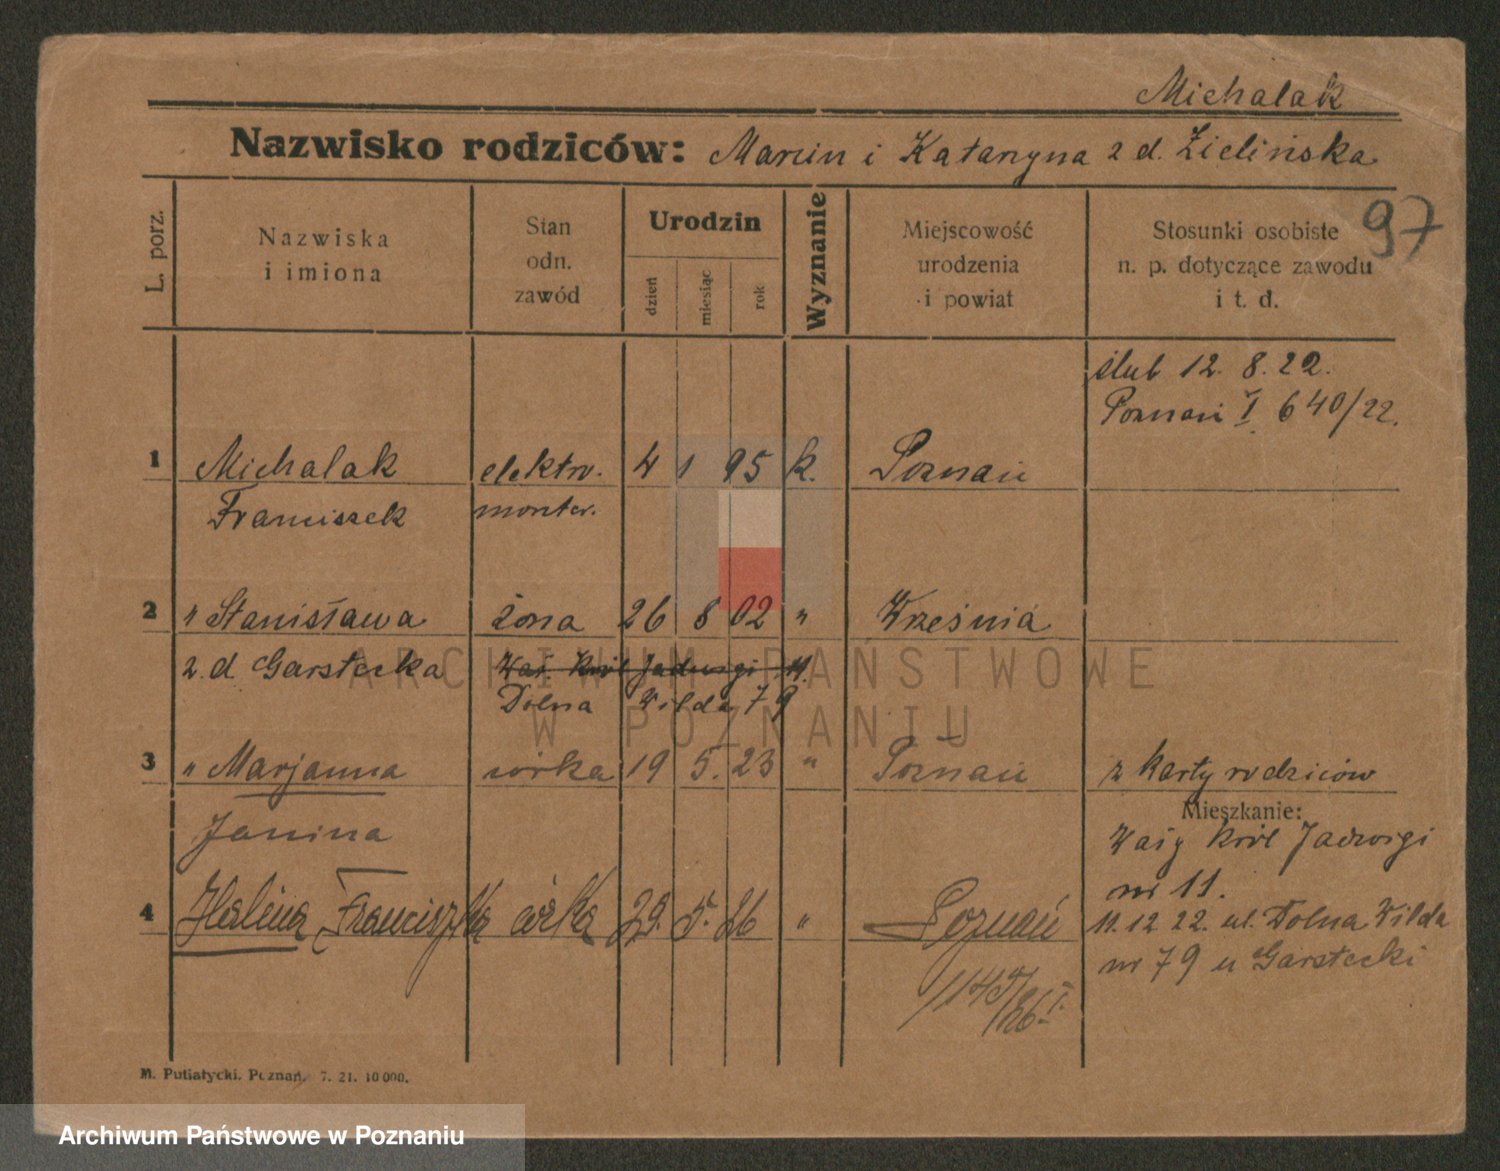 Michalak
Nazwisko rodziców: Marcin i Katarzyna z d. Zielińska
97
L. porz.
Nazwiska i imiona
Stan odn. zawód
Urodzin
dzień
miesiąc
rok
Wyznanie
Miejscowość urodzenia i powiat
Stosunki osobiste n. p. dotyczące zawodu i t. d.
ślub 12. 8. 22.
Poznań I 640/22.
1 Michalak elektro. 4 1 95 k. Poznań
Franciszek monter.
2 " Stanisława żona 26 8 02 " Września
z d. Garstecka Wał. Król Jadwigi 11.
Dolna Wilda 79
3 " Marjanna córka 19 5. 23 " Poznań z karty rodziców
Mieszkanie:
Janina Wały Król Jadwigi
nr 11.
4 Halina Franciszka córka 29. 5. 26 " Poznań 11.12 22. ul. Dolna Wilda
nr 79 u Garstecki
/26 I.
M. Putiatycki. Poznań. 7. 21. 10 000.
ARCHIWUM PAŃSTWOWE
W POZNANIU
Archiwum Państwowe w Poznaniu